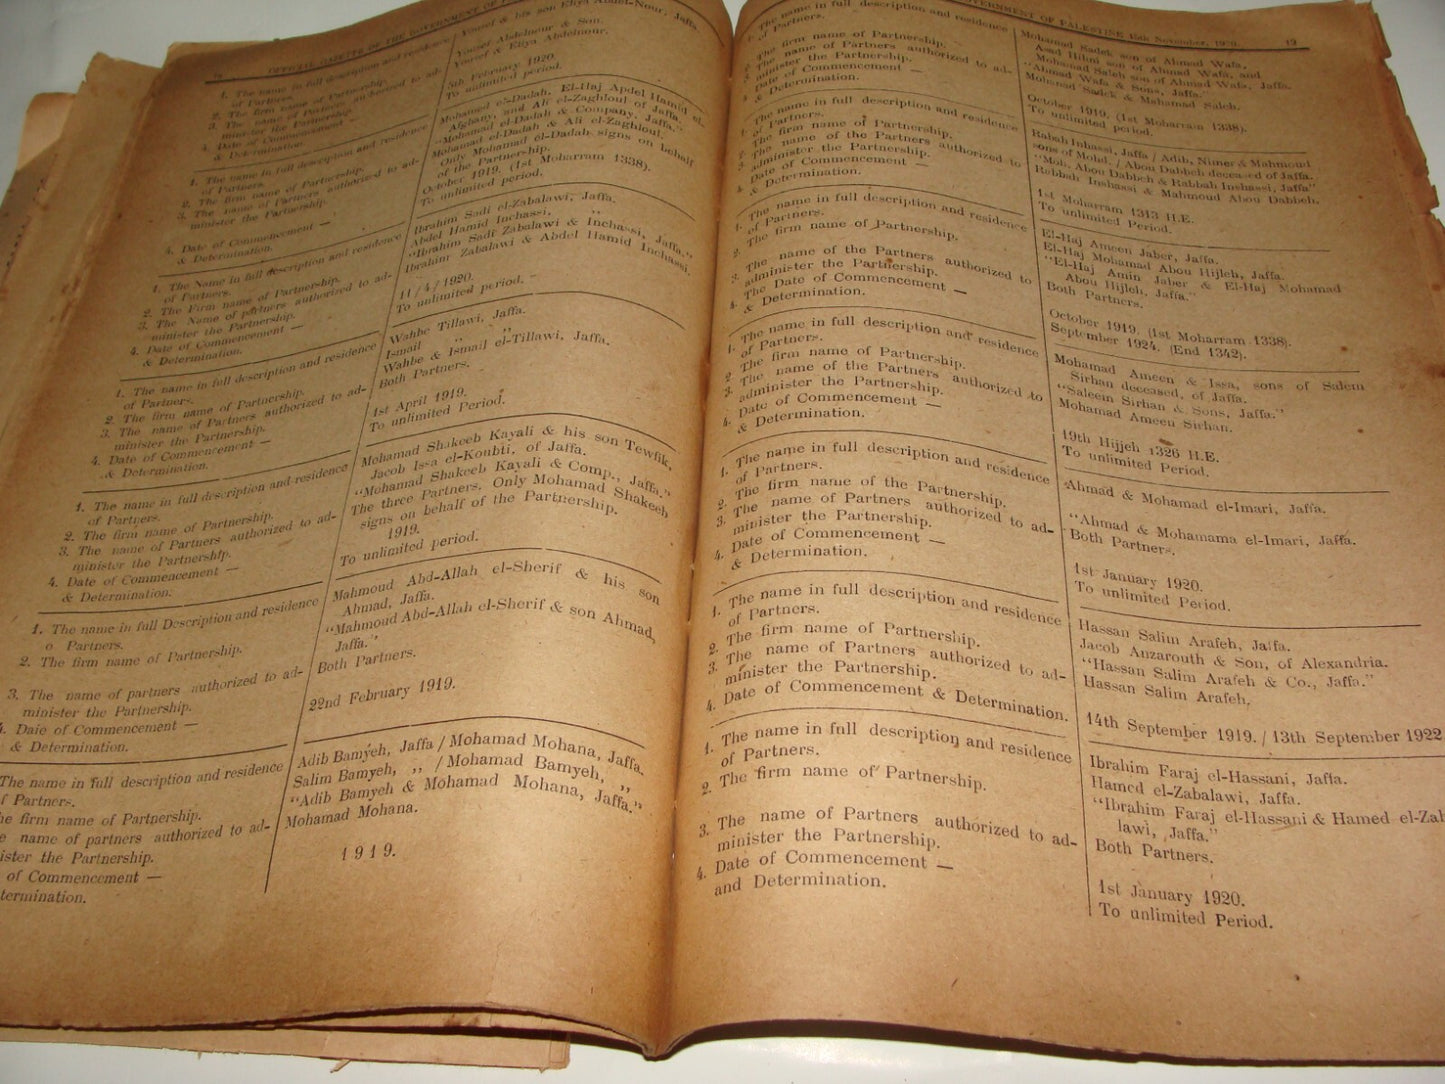 OFFICIAL GAZETTE OF THE GOVERNMENT OF
1. The name in full description and residence
of Partners.
2. The firm name of Partnership.
3. The name of Partners authorized to ad-
minister the Partnership.
4. Date of Commencement —
& Determination.
Yousef & his son Eliya Abdel-Nour, Jaffa
Yousef Abdelnour & Son.
Yousef & Eliya Abdelnour.
5th February 1920.
To unlimited period.
1. The name in full description and residence
of Partners.
2. The firm name of Partnership.
3. The name of Partners authorized to ad-
minister the Partnership.
4. Date of Commencement —
& Determination.
Mohamad el-Dadah, El-Haj Apdel Hamid el-
Afghany, and Ali el-Zaghloul of Jaffa.
"Mohamad el-Dadah & Company, Jaffa."
Mohamad el-Dadah & Ali el-Zaghloul.
Only Mohamad el-Dadah signs on behalf
of the Partnership.
October 1919. (1st Moharram 1338).
To unlimited period.
1. The Name in full description and residence
of Partners.
2. The Firm name of Partnership.
3. The Name of partners authorized to ad-
minister the Partnership.
4. Date of Commencement —
& Determination.
Ibrahim Sadi el-Zabalawi, Jaffa.
Abdel Hamid Inchassi, "
"Ibrahim Sadi Zabalawi & Inchassi, Jaffa."
Ibrahim Zabalawi & Abdel Hamid Inchassi.
11/4/1920.
To unlimited period.
1. The name in full description and residence
of Partners.
2. The firm name of Partnership.
3. The name of Partners authorized to ad-
minister the Partnership.
4. Date of Commencement —
& Determination.
Wahbe Tillawi, Jaffa.
Ismail " "
Wahbe & Ismail el-Tillawi, Jaffa.
Both Partners.
1st April 1919.
To unlimited Period.
1. The name in full description and residence
of Partners.
2. The firm name of Partnership.
3. The name of Partners authorized to ad-
minister the Partnership.
4. Date of Commencement —
& Determination.
Mohamad Shakeeb Kayali & his son Tewfik,
Jacob Issa el-Koubti, of Jaffa.
"Mohamad Shakeeb Kayali & Comp., Jaffa."
The three Partners. Only Mohamad Shakeeb
signs on behalf of the Partnership.
1919.
To unlimited period.
1. The name in full Description and residence
o Partners.
2. The firm name of Partnership.
3. The name of partners authorized to ad-
minister the Partnership.
4. Date of Commencement —
& Determination.
Mahmoud Abd-Allah el-Sherif & his son
Ahmad, Jaffa.
"Mahmoud Abd-Allah el-Sherif & son Ahmad,
Jaffa."
Both Partners.
22nd February 1919.
The name in full description and residence
f Partners.
he firm name of Partnership.
e name of partners authorized to ad-
ister the Partnership.
of Commencement —
termination.
Adib Bamyeh, Jaffa / Mohamad Mohana, Jaffa.
Salim Bamyeh, ,, / Mohamad Bamyeh, ,,
"Adib Bamyeh & Mohamad Mohana, Jaffa."
Mohamad Mohana.
1919.
GOVERNMENT OF PALESTINE 15th November, 1920. 19
1. The name in full description and residence
of Partners.
2. The firm name of Partnership.
3. The name of Partners authorized to ad-
minister the Partnership.
4. Date of Commencement —
& Determination.
Mohamad Sadek son of Ahmad Wafa,
Asad Hilmi son of Ahmad Wafa, and
Mohamad Saleh son of Ahmad Wafa, Jaffa.
"Ahmad Wafa & Sons, Jaffa."
Mohamad Sadek & Mohamad Saleh.
October 1919. (1st Moharram 1338).
To unlimited period.
1. The name in full description and residence
of Partners.
2. The firm name of Partnership.
3. The name of the Partners authorized to
administer the Partnership.
4. Date of Commencement —
& Determination.
Rabah Inhassi, Jaffa / Adib, Nimer & Mahmoud
sons of Mohd. / Abou Dabbeh deceased of Jaffa.
"Moh. Abou Dabbeh & Rabbah Inshassi, Jaffa"
Rabbah Inshassi & Mahmoud Abou Dabbeh.
1st Moharram 1313 H.E.
To unlimited Period.
1. The name in full description and residence
of Partners.
2. The firm name of Partnership.
3. The name of the Partners authorized to
administer the Partnership.
4. The Date of Commencement —
& Determination.
El-Haj Ameen Jaber, Jaffa.
El-Haj Mohamad Abou Hijleh, Jaffa.
"El-Haj Amin Jaber & El-Haj Mohamad
Abou Hijleh, Jaffa."
Both Partners.
October 1919. (1st Moharram 1338).
September 1924. (End 1342).
1. The name in full description and residence
of Partners.
2. The firm name of Partnership.
3. The name of the Partners authorized to
administer the Partnership.
4. Date of Commencement —
& Determination.
Mohamad Ameen & Issa, sons of Salem
Sirhan deceased, of Jaffa.
"Saleem Sirhan & Sons, Jaffa."
Mohamad Ameen Sirhan.
19th Hijjeh 1326 H.E.
To unlimited Period.
1. The name in full description and residence
of Partners.
2. The firm name of the Partnership.
3. The name of Partners authorized to ad-
minister the Partnership.
4. Date of Commencement —
& Determination.
Ahmad & Mohamad el-Imari, Jaffa.
"Ahmad & Mohamama el-Imari, Jaffa.
Both Partners.
1st January 1920.
To unlimited Period.
1. The name in full description and residence
of Partners.
2. The firm name of Partnership.
3. The name of Partners authorized to ad-
minister the Partnership.
4. Date of Commencement & Determination.
Hassan Salim Arafeh, Jaffa.
Jacob Anzarouth & Son, of Alexandria.
"Hassan Salim Arafeh & Co., Jaffa."
Hassan Salim Arafeh,
14th September 1919. / 13th September 1922
1. The name in full description and residence
of Partners.
2. The firm name of Partnership.
3. The name of Partners authorized to ad-
minister the Partnership.
4. Date of Commencement —
and Determination.
Ibrahim Faraj el-Hassani, Jaffa.
Hamed el-Zabalawi, Jaffa.
"Ibrahim Faraj el-Hassani & Hamed el-Zab
lawi, Jaffa."
Both Partners.
1st January 1920.
To unlimited Period.